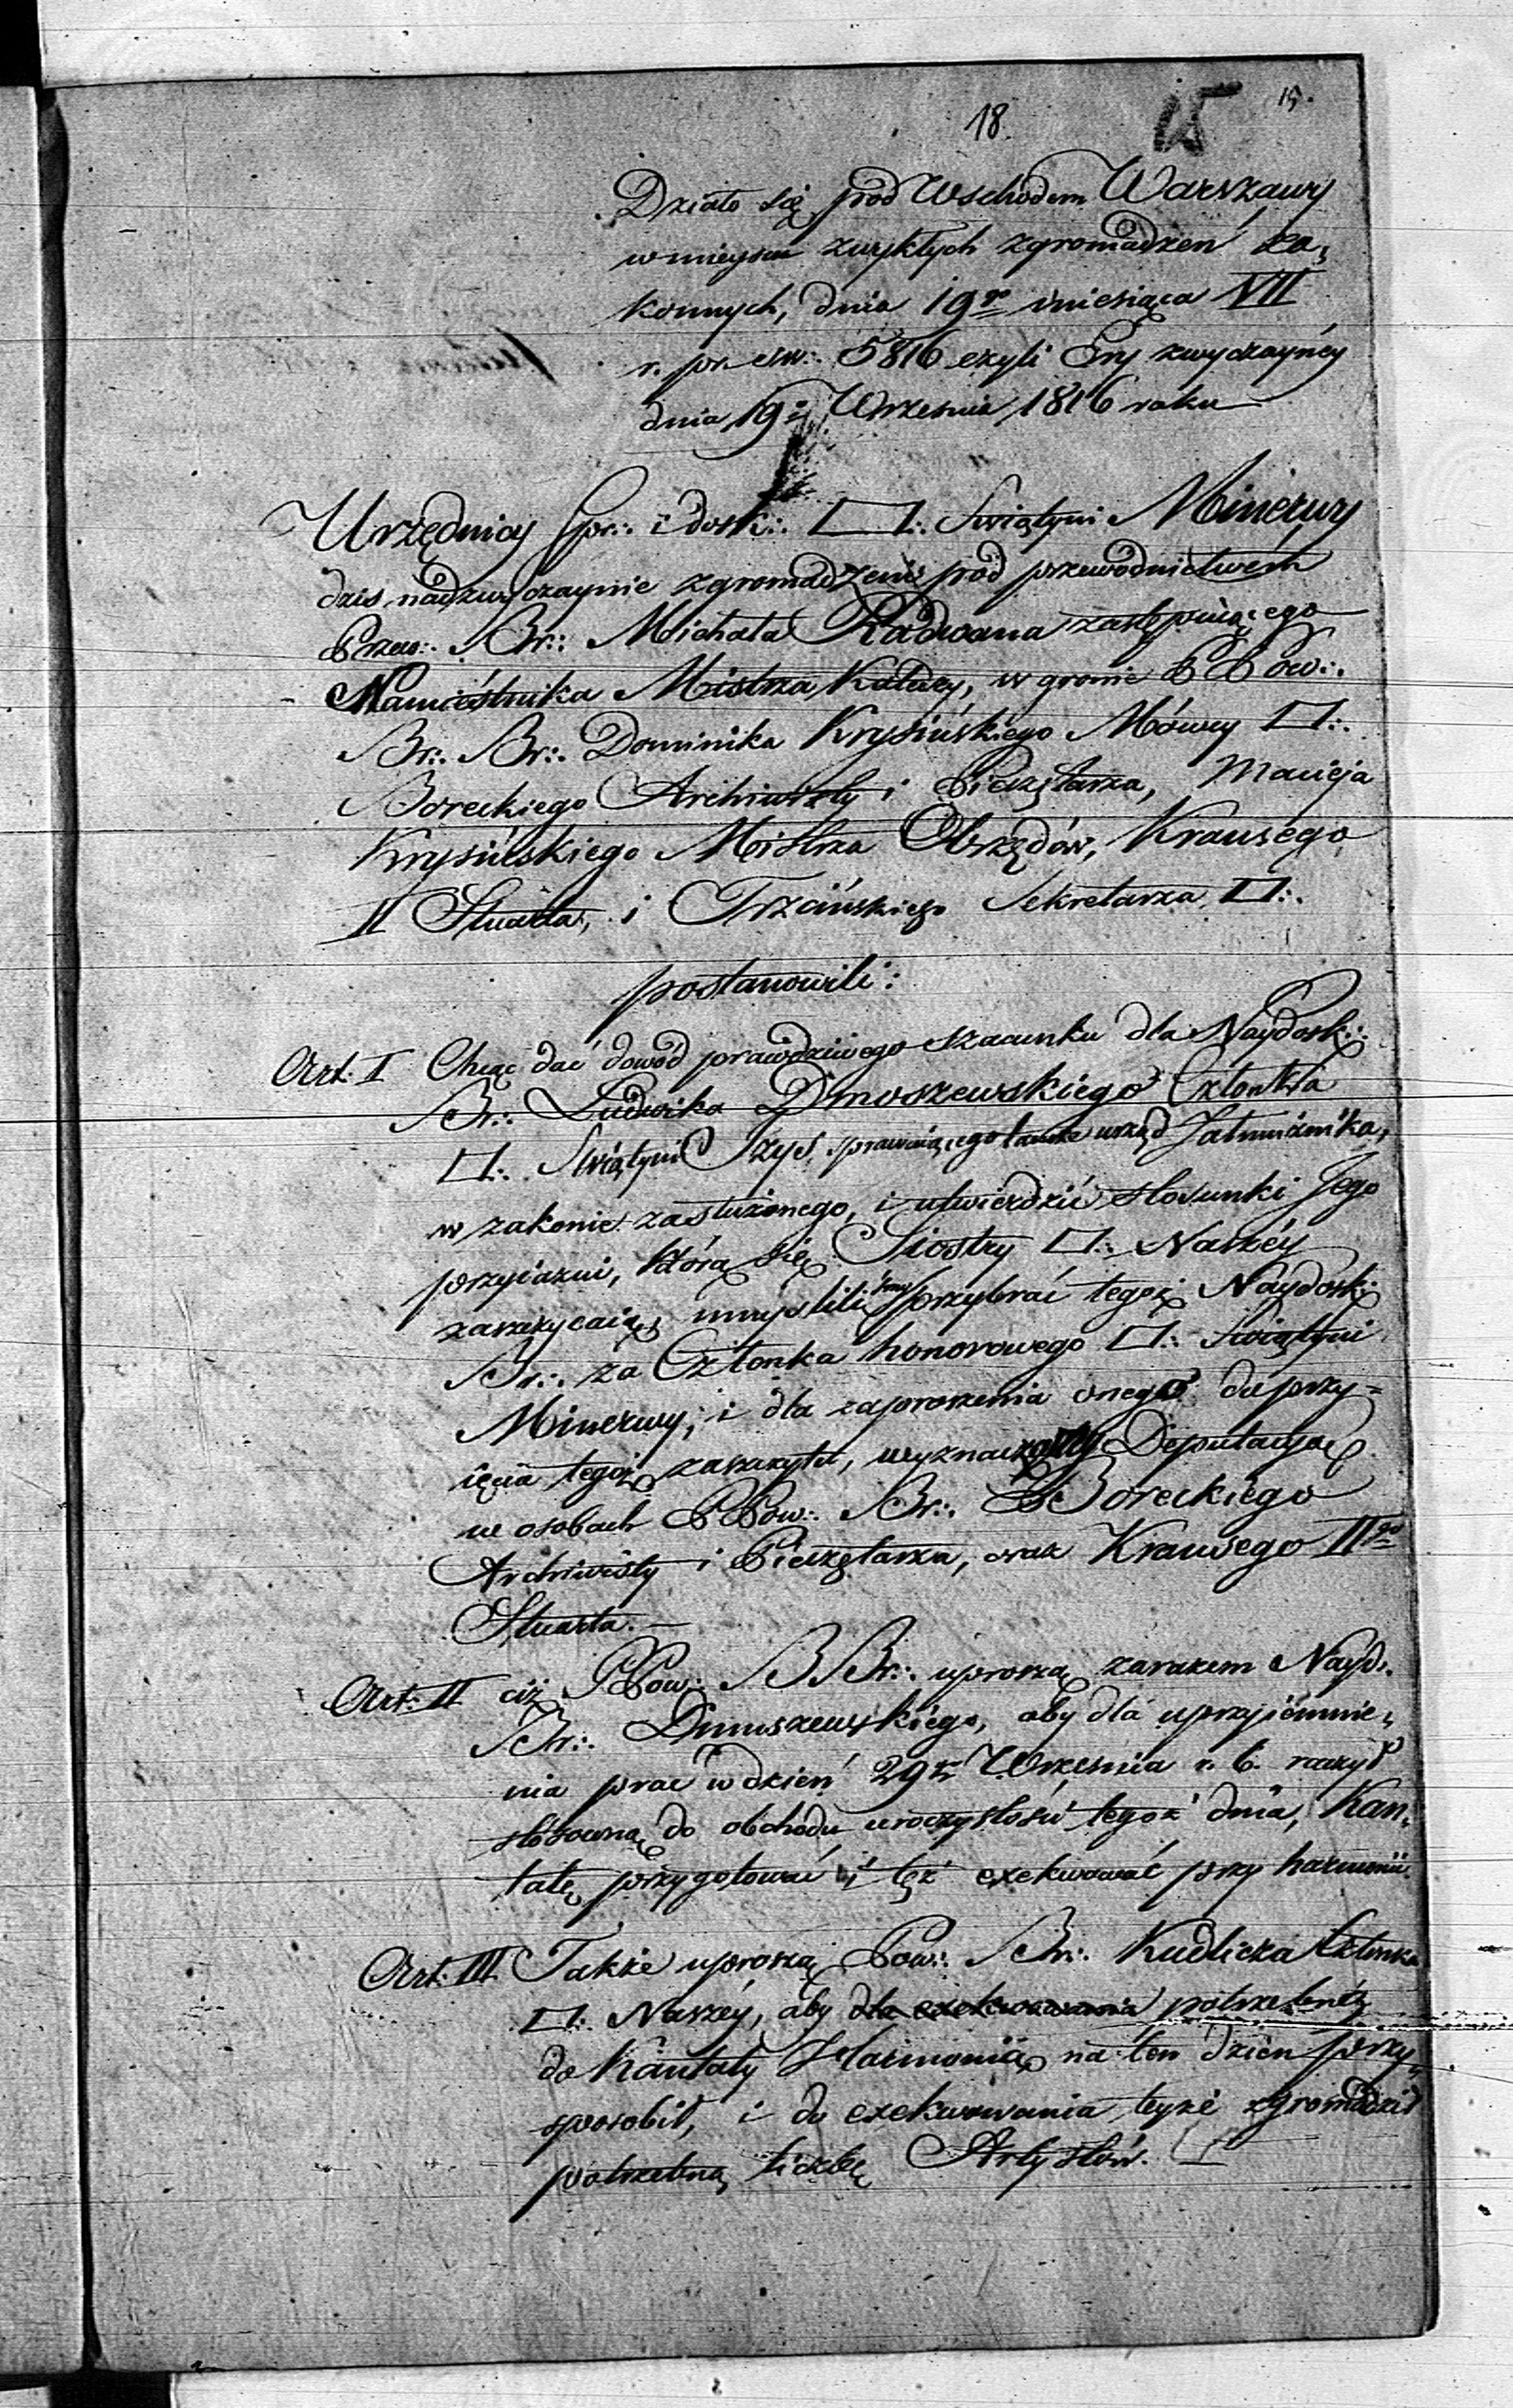 18. 15 15.
Działo się pod Wschodem Warszawy
w mieyscu zwykłych zgromadzeń Za,
konnych, dnia 19go miesiąca VII
r. pr. św:. 5816 czyli Ery zwyczayney
dnia 19go Września 1816 roku
Urzędnicy spr:. i dosk:. □:. Świątyni Minerwy
dziś nadzwyczaynie zgromadzeni pod przewodnictwem
Przew:. Br:. Michała Radwana zastępuiącego
Namiestnika Mistrza Katedry, w gronie PPow:.
Br:. Br:. Dominika Krysińskiego Mówcy □:.
Boreckiego Archiwisty i Pieczętarza, Macieja
Krysińskiego Mistrza Obrzędów, Krausego
II Stuarta, i Trzcińskiego Sekretarza □:.
postanowili:
Art: I Chcąc dać dowód prawdziwego szacunku dla Naydosk:.
Br:. Ludwika Dmoszewskiego Członka
□:. Świątyni Izys, sprawuiącego tamże urząd Jałmużnika,
w zakonie zasłużonego, i utwierdzić stosunki Jego
przyiaźni, którą się Siostry □:. Naszéy
zaszczycaią, umyślili przybrać tegoż Naydosk:.
Br:. za Członka honorowego □:. Świątyni
Minerwy; i dla zaproszenia onego do przy=
ięcia tegoż zaszczytu, wyznaczyli Deputacyą
w osobach PPow:. Br:. Boreckiego
Archiwisty i Pieczętarza, oraz Krausego IIgo
Stuarta. —
Art: II ciż PPow:. BBr:. uproszą zarazem Nayd:.
Br:. Dmuszewskiego, aby dla uprzyiemnie,
nia prac w dzień 29ty Września r. b. raczył
stósowną do obchodu uroczystości tegoż dnia, Kan,
tatę przygotować i też exekwować przy harmonii.
Art: III. Także uproszą Pow:. Br:. Kudlicza Członka
□:. Naszéy, aby dla exekwowania potrzebną
do Kantaty Harmonią na ten dzień przy,
sposobił, i do exekwowania teyże zgromadził
potrzebną liczbę Artystów.